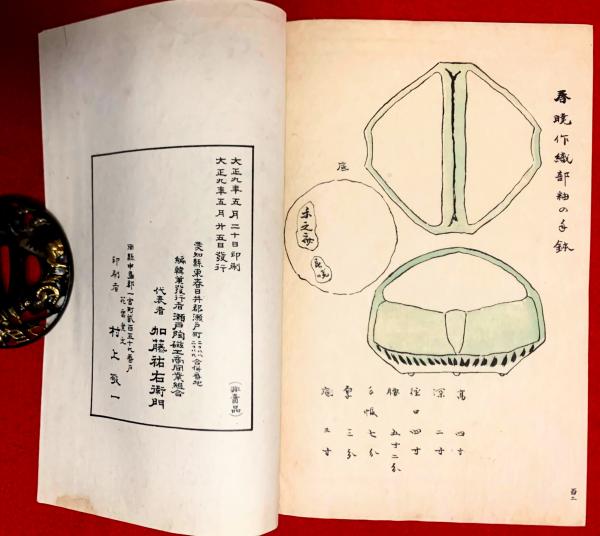 春暁作織部釉の手鉢
底
高 四寸
深 二寸
径口 四寸
胴 五寸二分
手幅 七分
底 三寸
百二
大正九年五月二十日印刷
大正九年五月廿五日發行
愛知縣東春日井郡瀬戸町
編輯兼發行者 瀬戸陶磁工商同業組合
代表者 加藤祐右衛門
印刷者 村上敬一
(非賣品)